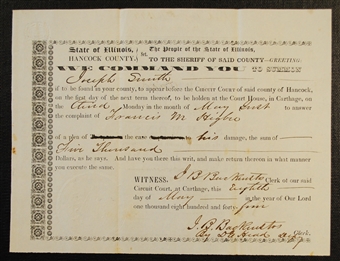 State of Illinois, } The People of the State of Illinois,
HANCOCK COUNTY. } sct. TO THE SHERIFF OF SAID COUNTY—GREETING
WE COMMAND YOU TO SUMMON
Joseph Smith
if to be found in your county, to appear before the CIRCUIT COURT of said county of Hancock,
on the first day of the next term thereof, to be holden at the Court House, in Carthage, on
the third Monday in the month of May Inst to answer
the complaint of Francis M Higbee
of a plea of the case to his damage, the sum of
Five Thousand
Dollars, as he says. And have you there this writ, and make return thereon in what manner
you execute the same.
WITNESS. J B Backenstos Clerk of our said
Circuit Court, at Carthage, this Eighth
day of May in the year of Our Lord
one thousand eight hundred and forty four
J. B. Backenstos Clerk.
By D.